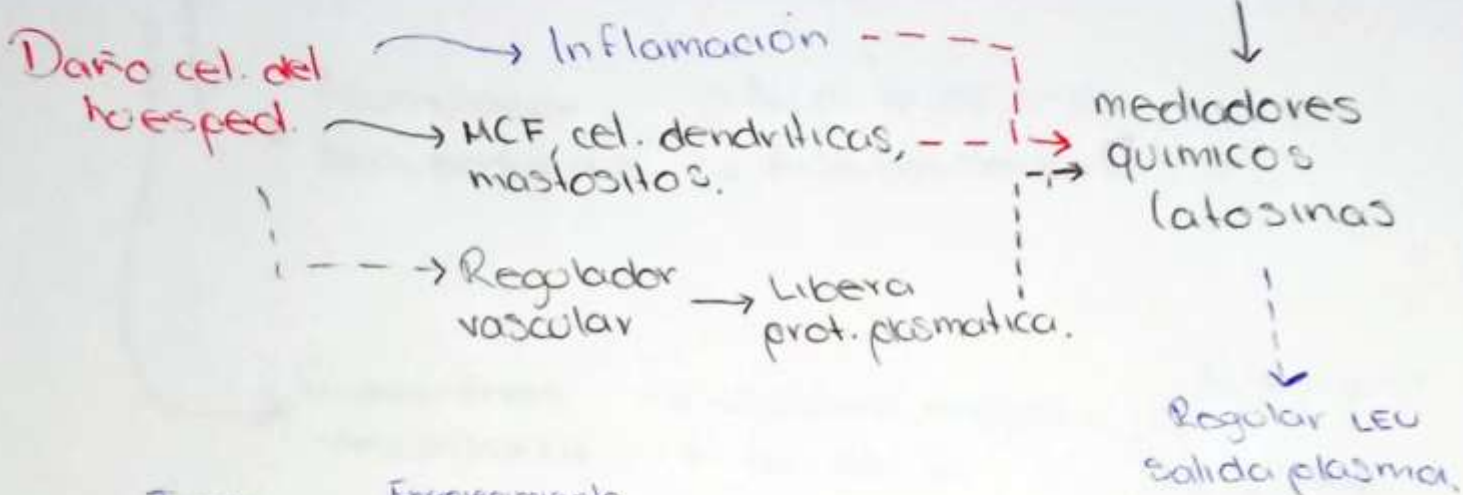 Daño cel. del
hoesped.
Inflamación
MCF, cel. dendriticas,
mastositos.
Regulador
vascular
Libera
prot. plasmatica.
mediadores
quimicos
latosinas
Regular LEU
salida plasma.